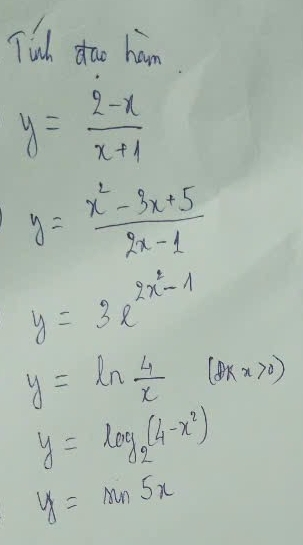 Tính đạo hàm
y = (2-x)/(x+1)
y = (x² - 3x + 5)/(2x - 1)
y = 3e^(2x²-1)
y = ln 4/x (ĐK x>0)
y = log₂(4-x²)
y = sin 5x